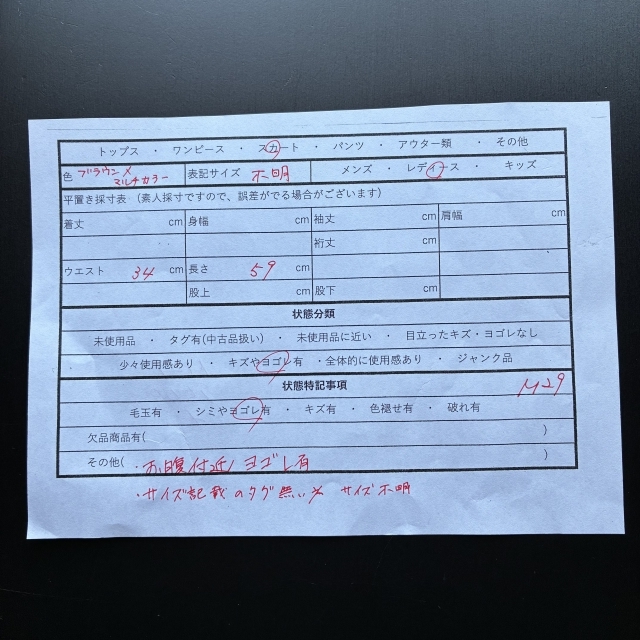 トップス ・ ワンピース ・ スカート ・ パンツ ・ アウター類 ・ その他
色 ブラウン× マルチカラー 表記サイズ 不明 メンズ ・ レディース ・ キッズ
平置き採寸表 (素人採寸ですので、誤差がでる場合がございます)
着丈 cm 身幅 cm 袖丈 cm 肩幅 cm
裄丈 cm
ウエスト 34 cm 長さ 59 cm
股上 cm 股下 cm
状態分類
未使用品 ・ タグ有(中古品扱い) ・ 未使用品に近い ・ 目立ったキズ・ヨゴレなし
少々使用感あり ・ キズやヨゴレ有 ・全体的に使用感あり ・ ジャンク品
状態特記事項 M29
毛玉有 ・ シミやヨゴレ有 ・ キズ有 ・ 色褪せ有 ・ 破れ有
欠品商品有( )
その他( ・お腹付近ヨゴレ有 )
・サイズ記載のタグ無い サイズ不明